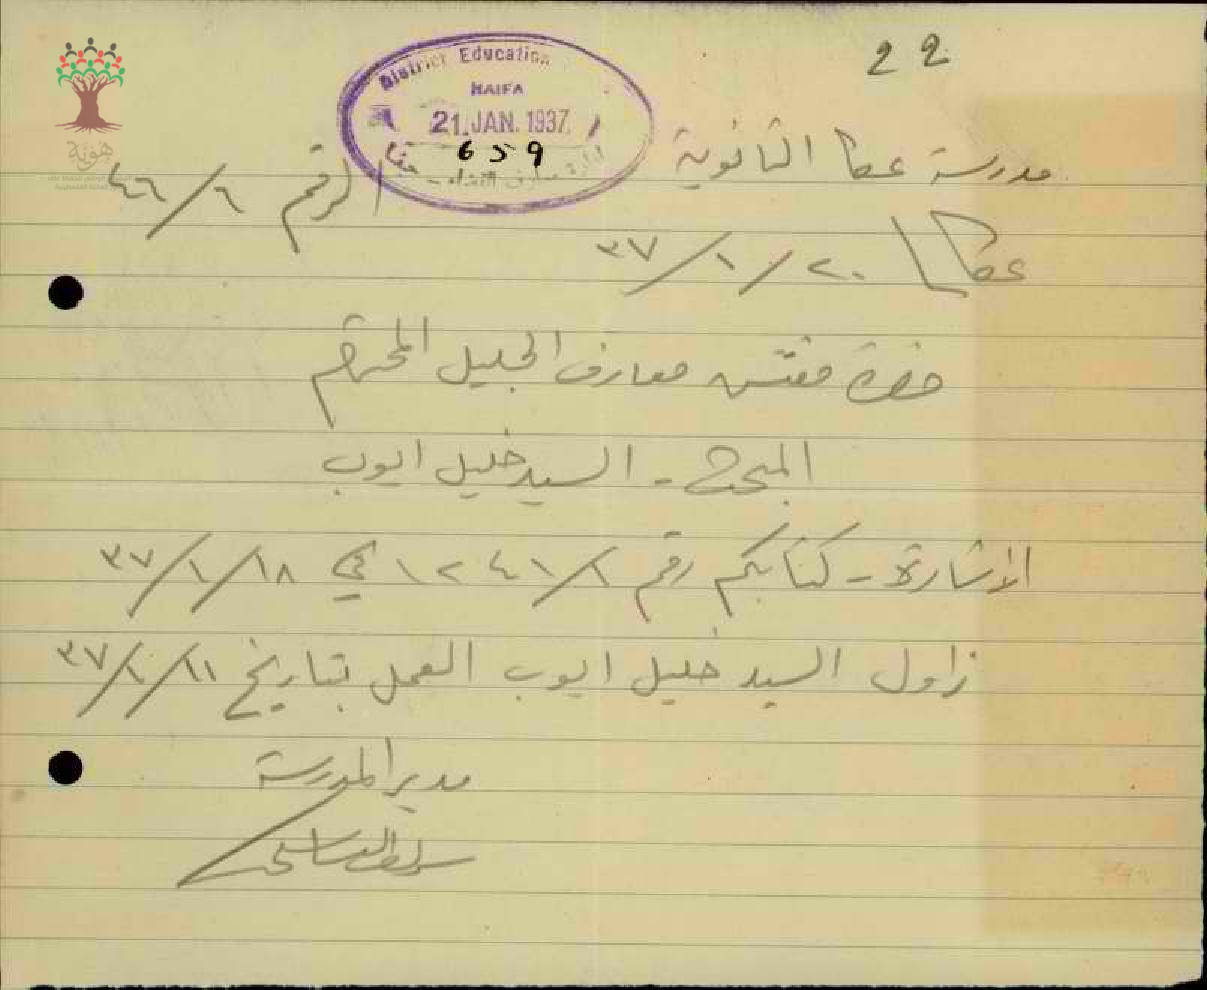 22
District Education
HAIFA
21.JAN.1937
659
مدرسة عكا الثانوية
الرقم ٦/٤٦
عكا ٢٠/١/٣٧
حضرة مفتش معارف الجليل المحترم
المبحث - السيد خليل ايوب
الاشارة - كتابكم رقم ١٢٤١/١ في ١٨/١/٣٧
زاول السيد خليل ايوب العمل بتاريخ ١١/١/٣٧
مدير المدرسة
هوية